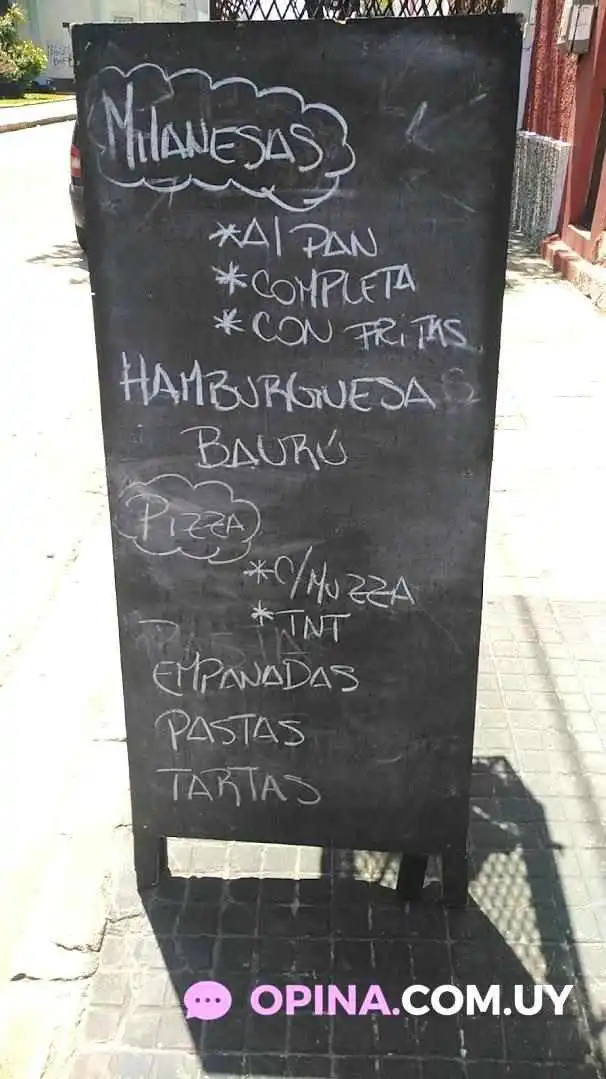 MILANESAS
*AL PAN
*COMPLETA
*CON FRITAS
HAMBURGUESAS
BAURÚ
PIZZA
*C/MUZZA
*TNT
EMPANADAS
PASTAS
TARTAS
OPINA.COM.UY